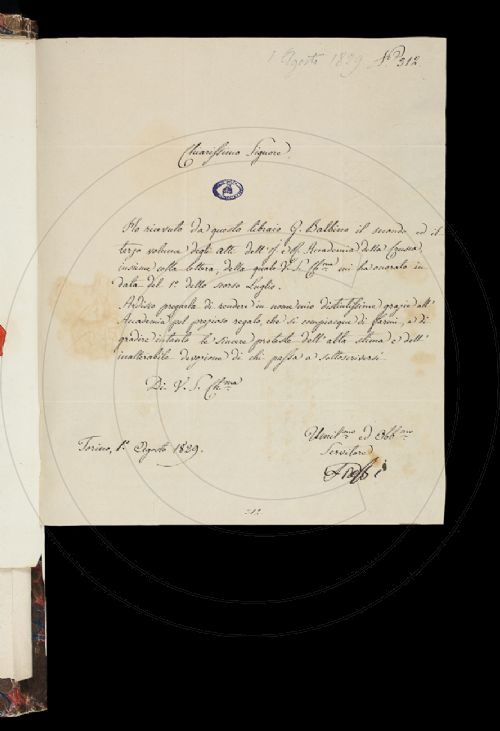 1 Agosto 1829 N.° 312
Chiarissimo Signore.
Ho ricevuto da questo libraio G. Balbino il secondo ed il
terzo volume degli atti dell' I. e R. Accademia della Crusca,
insieme colla lettera, della quale V. S. Ch.ma mi ha onorato in
data del 1.° dello scorso Luglio.
Ardisco pregarla di rendere in nome mio distintissime grazie all'
Accademia pel prezioso regalo, che si compiacque di farmi, e di
gradire intanto le sincere proteste dell' alta stima e dell'
inalterabile devozione di chi passa a sottoscriversi
Di V. S. Ch.ma
Torino, 1.° Agosto 1829.
Umil.mo ed Obb.mo
Servitore
312